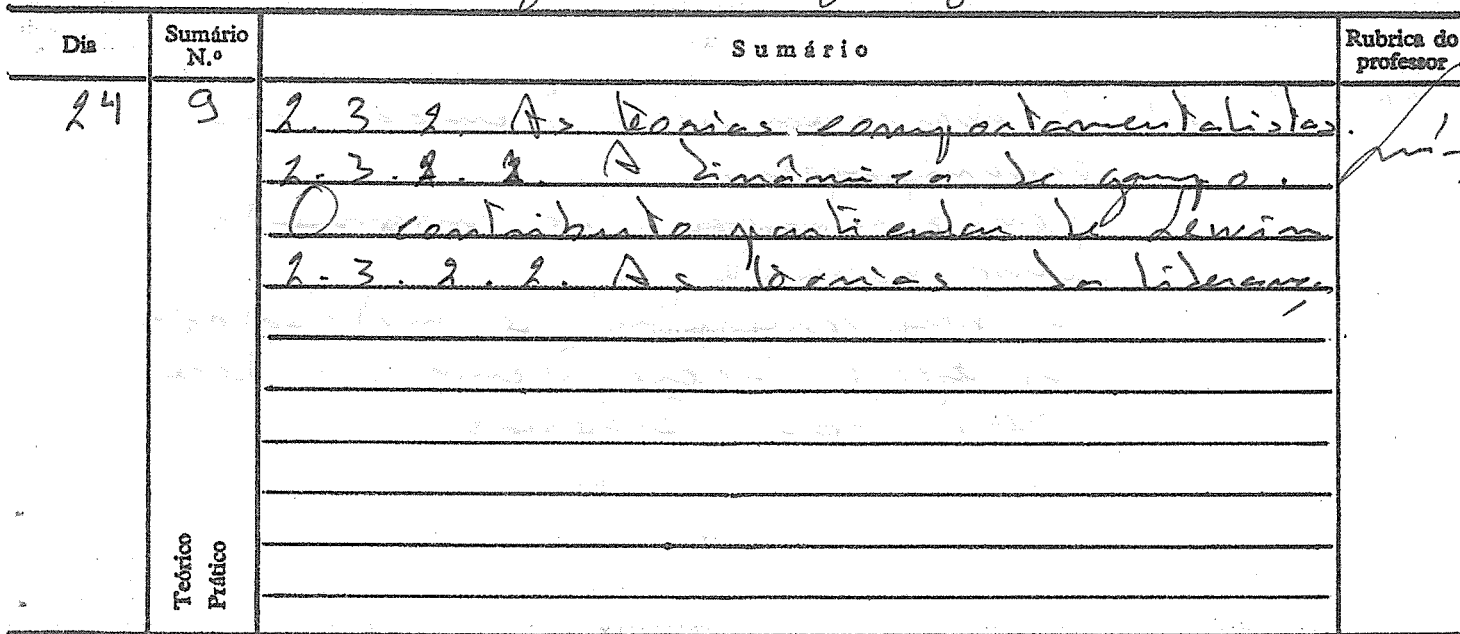 Dia
Sumário N.º
Sumário
Rubrica do professor
24
9
2.3.2. As teorias comportamentalistas.
2.3.2.2. A dinâmica de grupo.
O contributo particular de Lewin
2.3.2.2. As teorias da liderança
Teórico
Prático